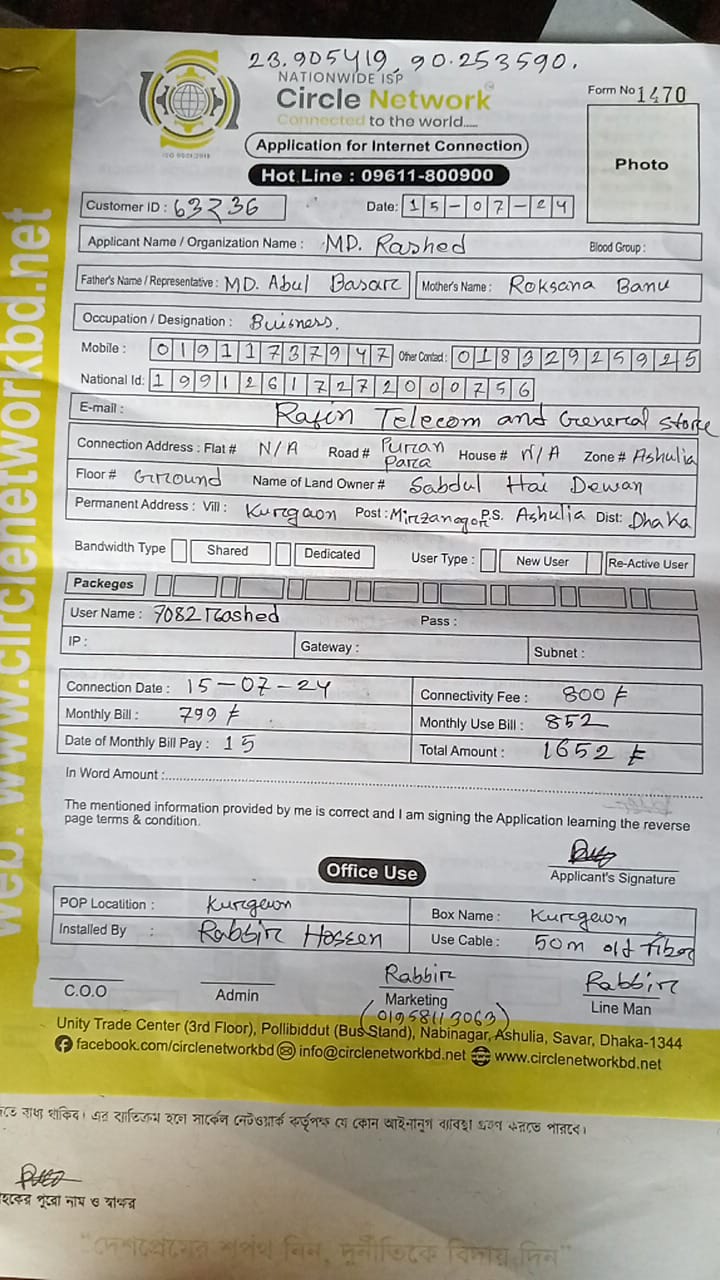 23.905419, 90.253590.
NATIONWIDE ISP
Circle Network
Connected to the world.....
ISO 9001:2015
Form No 1470
Application for Internet Connection
Photo
Hot Line : 09611-800900
Customer ID : 63236
Date: 15-07-24
Applicant Name / Organization Name : MD. Rashed Blood Group :
Father's Name / Representative : MD. Abul Basar Mother's Name : Roksana Banu
Occupation / Designation : Buisness.
Mobile : 01911737947 Other Contact : 01832925925
National Id: 19912617272000756
E-mail : Rafin Telecom and General Store
Connection Address : Flat # N/A Road # Puran Para House # N/A Zone # Ashulia
Floor # Ground Name of Land Owner # Sabdul Hai Dewan
Permanent Address : Vill : Kurgaon Post : Mirzanagor P.S. Ashulia Dist: Dhaka
Bandwidth Type Shared Dedicated User Type : New User Re-Active User
Packeges
User Name : 7082rashed Pass :
IP : Gateway : Subnet :
Connection Date : 15-07-24 Connectivity Fee : 800 ৳
Monthly Bill : 799 ৳ Monthly Use Bill : 852
Date of Monthly Bill Pay : 15 Total Amount : 1652 ৳
In Word Amount :
The mentioned information provided by me is correct and I am signing the Application learning the reverse
page terms & condition.
Applicant's Signature
Office Use
POP Locatition : Kurgaon Box Name : Kurgaon
Installed By : Rabbir Hossen Use Cable : 50m old Fiber
Rabbir Rabbir
C.O.O Admin Marketing Line Man
(01958113063)
Unity Trade Center (3rd Floor), Pollibiddut (Bus Stand), Nabinagar, Ashulia, Savar, Dhaka-1344
facebook.com/circlenetworkbd info@circlenetworkbd.net www.circlenetworkbd.net
web: www.circlenetworkbd.net
বাধ্য থাকিব। এর ব্যতিক্রম হলে সার্কেল নেটওয়ার্ক কর্তৃপক্ষ যে কোন আইনানুগ ব্যবস্থা গ্রহণ করতে পারবে।
হকের পুরো নাম ও স্বাক্ষর
"দেশপ্রেমের শপথ নিন, দুর্নীতিকে বিদায় দিন"